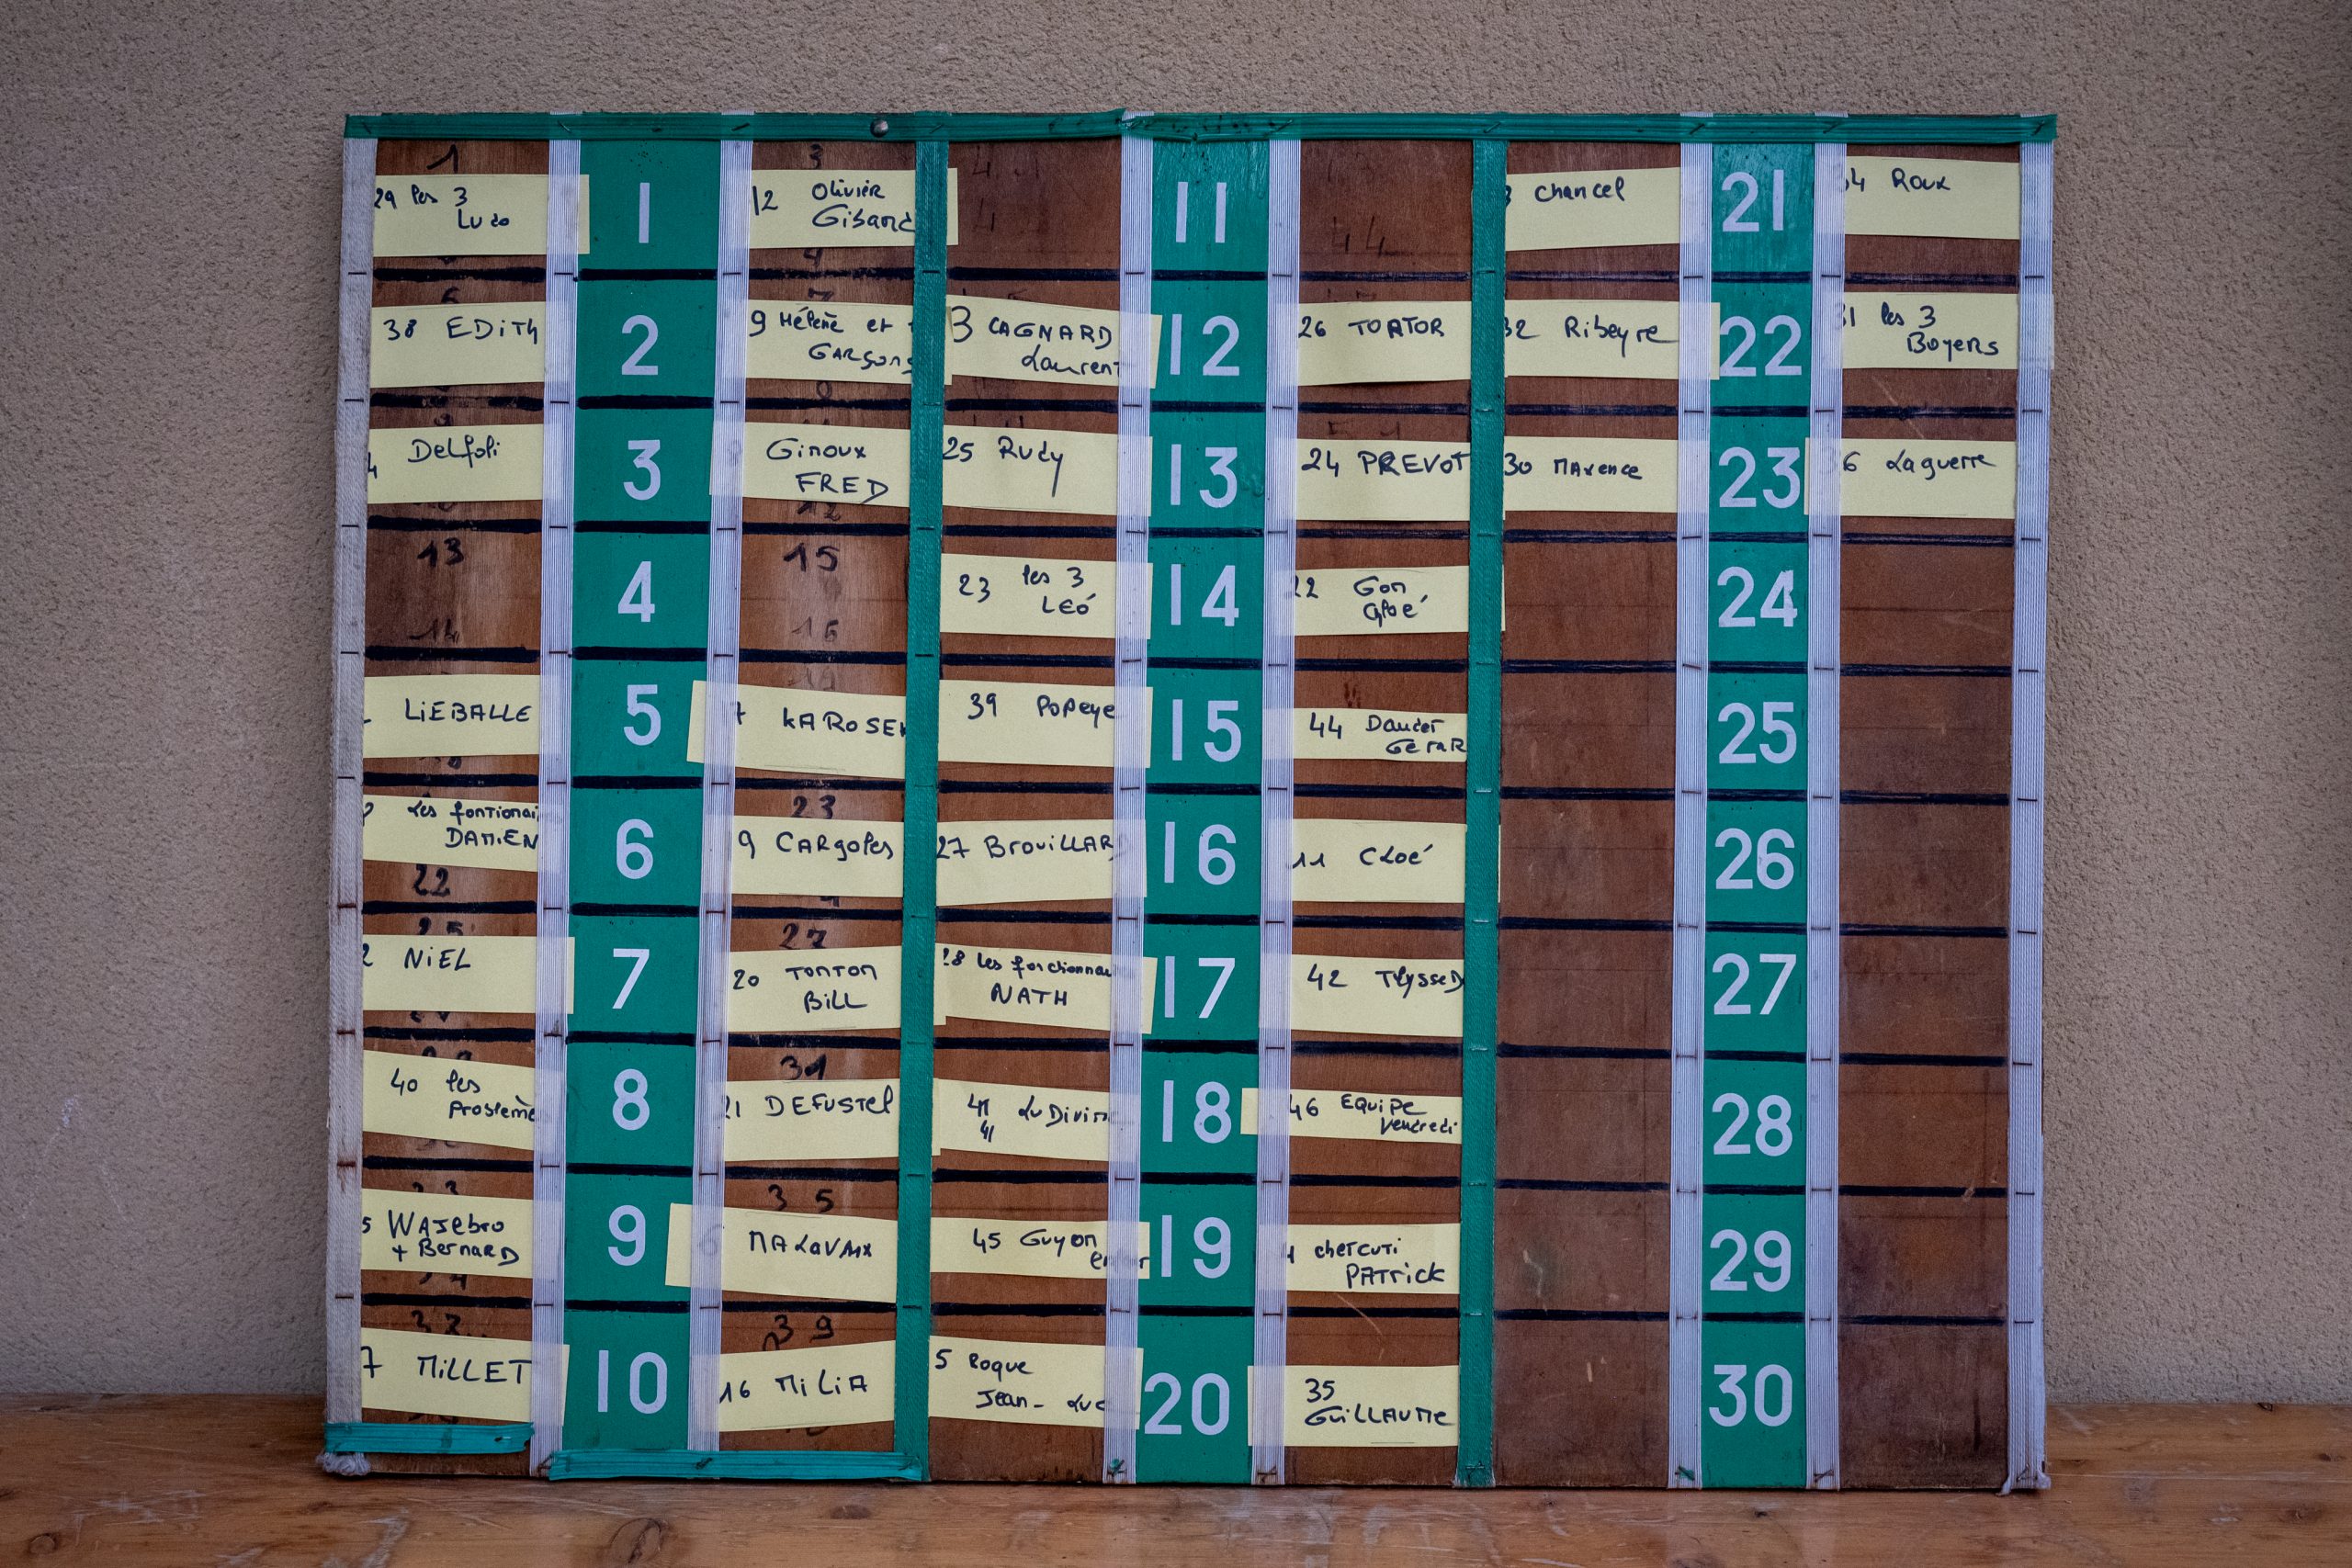 29 les 3
Ludo
1
12 Olivier
Gibard
11
Chancel
21
Roux
38 EDITH
2
9 Hélène et
GARÇONS
3 CAGNARD
Laurent
12
26 TOATOR
32 Ribeyre
22
31 les 3
Boyers
4 Delfoli
3
Giroux
FRED
25 Rudy
13
24 PREVOT
30 MAxence
23
36 Laguerre
13
14
4
15
16
23 les 3
LEÓ
14
22
24
LiEBALLE
5
7 KAROSE
39 Popeye
15
44 Daudet
Gérar
25
les fontionai
DAMiEN
22
6
23
9 CARgoles
27 BrouiLLARD
16
11 CLoé
26
2 NiEL
7
27
20 TONTON
BiLL
28 les fonctionnai
NATH
17
42
27
40 les
Problème
8
31
21 DEFUSTEl
41 LuDivin
41
18
46 Equipe
Vendredi
28
5 WAJebro
+ BernARD
9
35
MALAVAUX
45 Guyon
19
chercuti
PATrick
29
37
7 MiLLET
10
39
16 MiLiA
5 Roque
Jean-Luc
20
35
GuiLLAUME
30